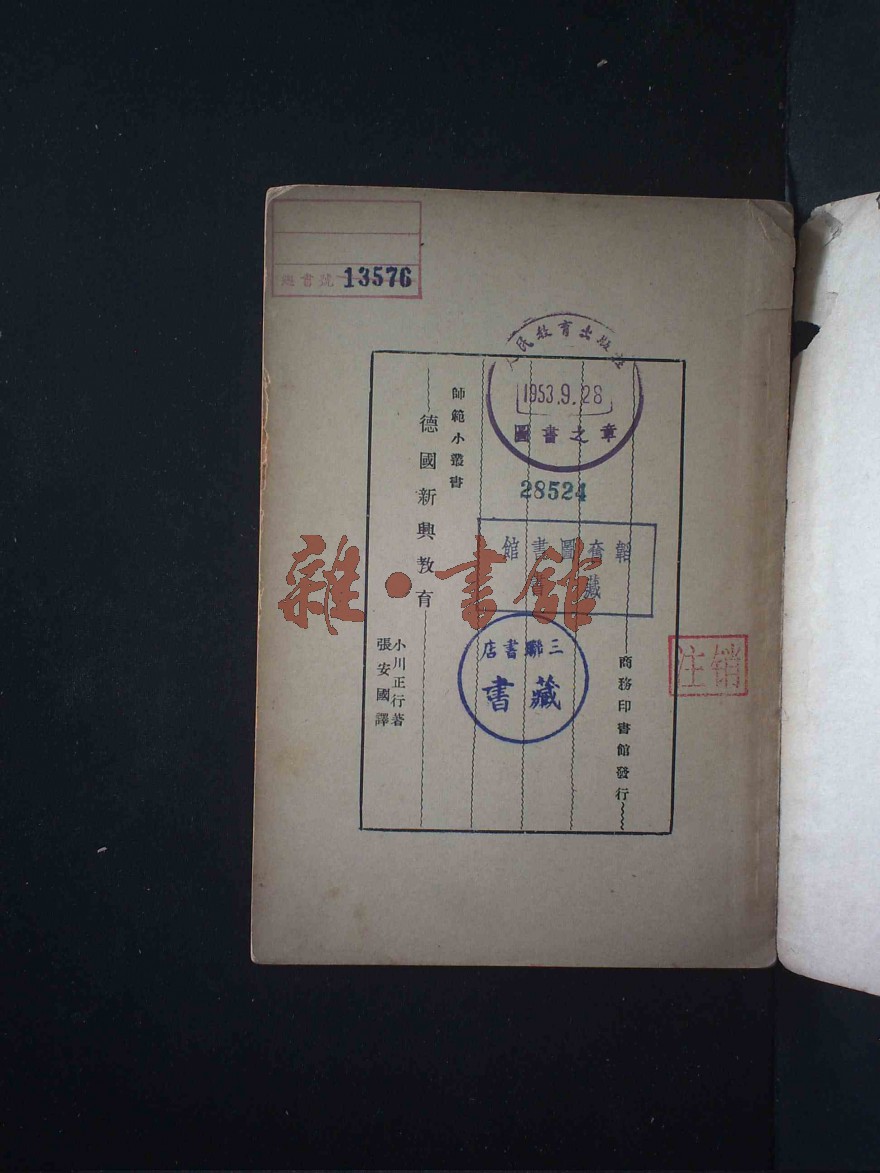 總書號 13576
人民教育出版社
1953.9.28
圖書之章
28524
師範小叢書
德國新興教育
小川正行著
張安國譯
商務印書館發行
韜奮圖書館
藏書
三聯書店
藏書
注销
雜·書館